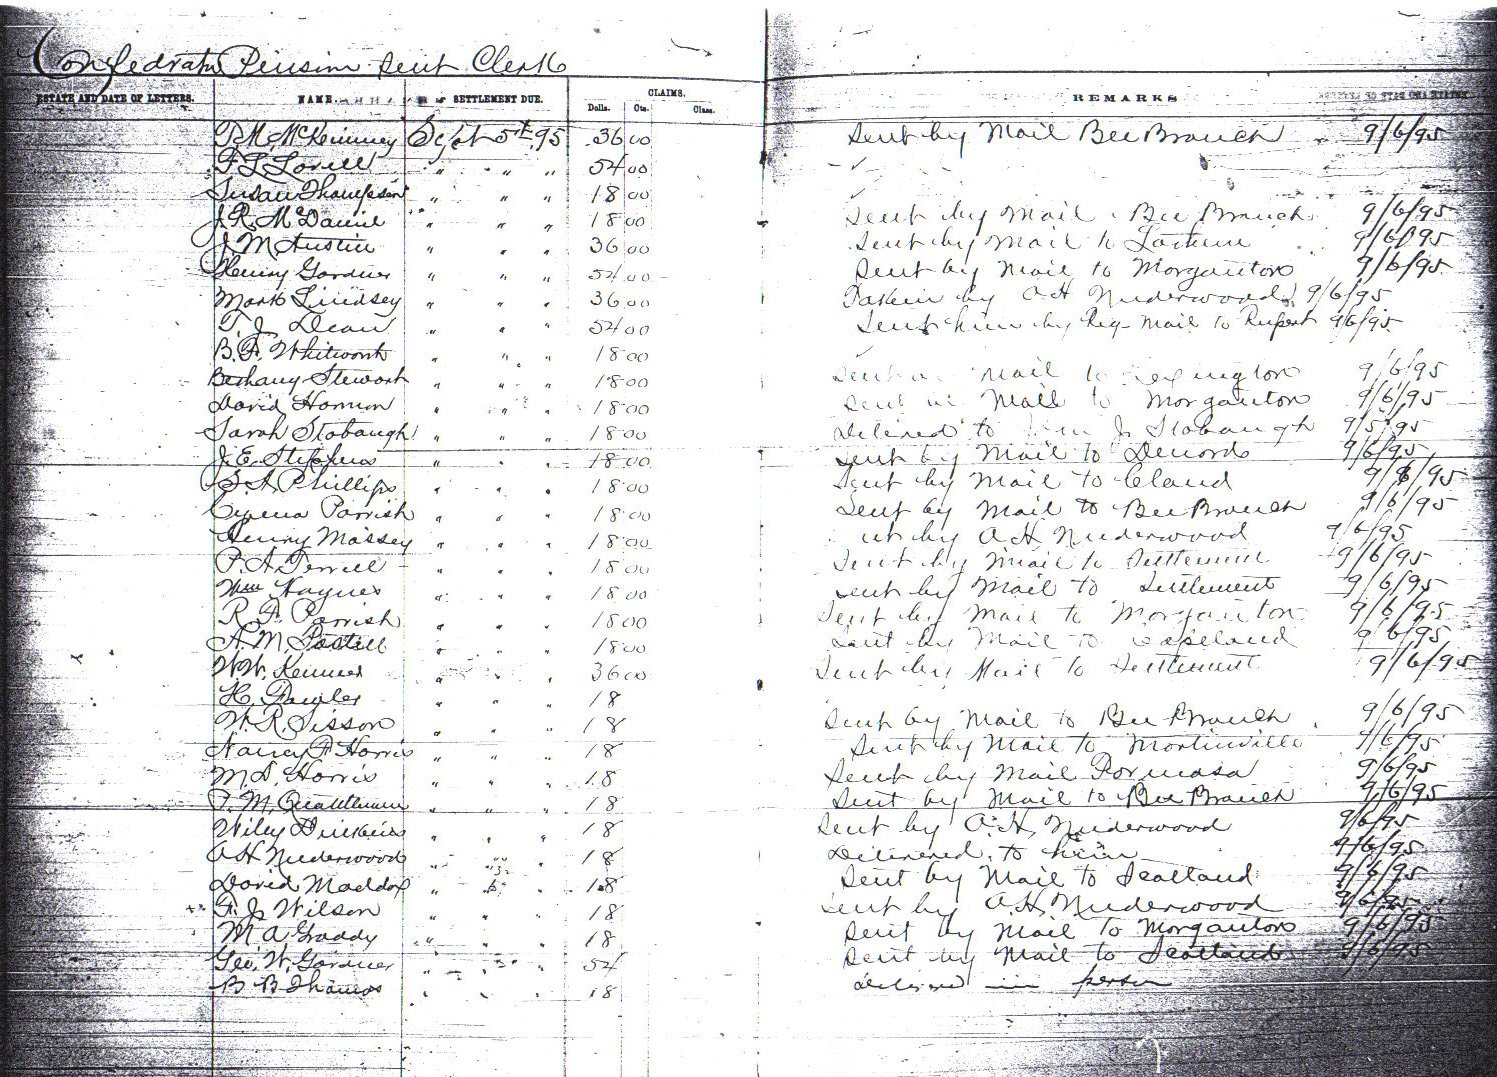 Confedrate Pension sent Clerk
ESTATE AND DATE OF LETTERS. NAME. SETTLEMENT DUE. CLAIMS. Dolls. Cts. Class. REMARKS
P. M. McKinney Sept 5th 95 36 00 Sent by Mail Bee Branch 9/6/95
F L Lovell " " " 54 00
Susan Thompson " " " 18 00
J. R. McDaniel " " " 18 00 Sent by Mail Bee Branch 9/6/95
J M Austin " " " 36 00 Sent by Mail to 9/6/95
Henry Gardner " " " 54 00 Sent by Mail to Morganton 9/6/95
Mark Lindsey " " " 36 00 Taken by A H Underwood 9/6/95
T. J. Dean " " " 54 00 Sent him by Reg Mail to Rupert 9/6/95
B. F. Whitworth " " " 18 00
Bethany Stewart " " " 18 00 Sent Mail to Lexington 9/6/95
David Harmon " " " 18 00 Sent Mail to Morganton 9/6/95
Sarah Stobaugh " " " 18 00 to J. Stobaugh 9/5/95
J. E. Stephens " " " 18 00 Sent by Mail to 9/6/95
S. A. Phillips " " " 18 00 Sent by Mail to Eland 9/6/95
Parrish " " " 18 00 Sent by Mail to Bee Branch 9/6/95
Henry Massey " " " 18 00 by A H Underwood 9/6/95
P. A. Terrell " " " 18 00 Sent by Mail to Settlement 9/6/95
Wm Haynes " " " 18 00 Sent by Mail to Settlement 9/6/95
R. F. Parrish " " " 18 00 Sent by Mail to Morganton 9/6/95
A. M. Pastell " " " 18 00 Sent by Mail to Copeland 9/6/95
W. W. Kenner " " " 36 00 Sent by Mail to Settlement 9/6/95
H. Fowler " " " 18
W. R. Sisson " " " 18 Sent by Mail to Bee Branch 9/6/95
Nancy F Harris " " " 18 Sent by Mail to Martinville 9/6/95
M. D. Harris " " " 18 Sent by Mail Formosa 9/6/95
T. M. Quattlebaum " " " 18 Sent by Mail to Bee Branch 9/6/95
Wiley Dickens " " " 18 Sent by A. H. Underwood 9/6/95
A H Underwood " " " 18 Delivered to him 9/6/95
David Maddox " " " 18 Sent by Mail to Scotland 9/6/95
F. J. Wilson " " " 18 Sent by A. H. Underwood 9/6/95
M A Gaddy " " " 18 Sent by Mail to Morganton 9/6/95
Geo. W. Gardner " " " 54 Sent by Mail to Scotland 9/6/95
B B Thomas " " " 18 Delivered in person